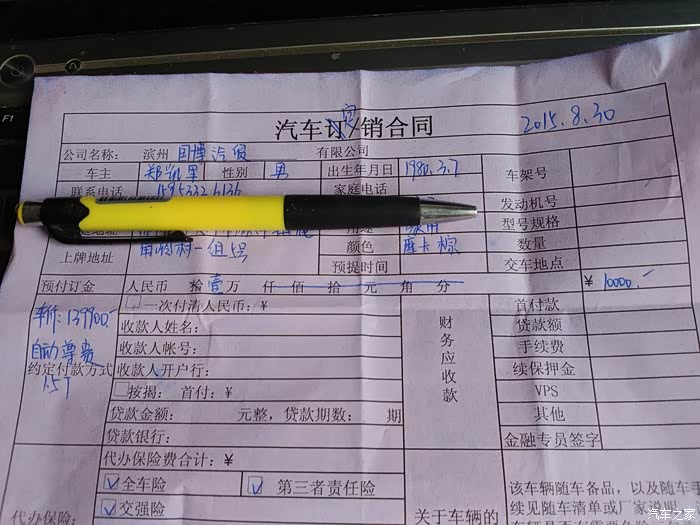 F1
汽车订/销合同
定
2015.8.30
公司名称： 滨州 国博汽贸 有限公司
车主 性别 男 出生年月日 1980.3.7 车架号
联系电话 家庭电话 发动机号
用途 型号规格
上牌地址 一组 号 颜色 摩卡棕 数量
预提时间 交车地点
预付订金 人民币 拾 壹 万 仟 佰 拾 元 角 分 ￥ 10000.-
车价: 139900.-
自动尊贵
1.5T
约定付款方式
一次付清人民币：￥
收款人姓名：
收款人帐号：
收款人开户行：
按揭： 首付：￥
贷款金额： 元整，贷款期数： 期
贷款银行：
财务应收款
首付款
贷款额
手续费
续保押金
VPS
其他
金融专员签字
代办保险：
代办保险费合计：￥
全车险 第三者责任险
交强险
关于车辆的
该车辆随车备品，以及随车手
续见随车清单或厂家说明
汽车之家